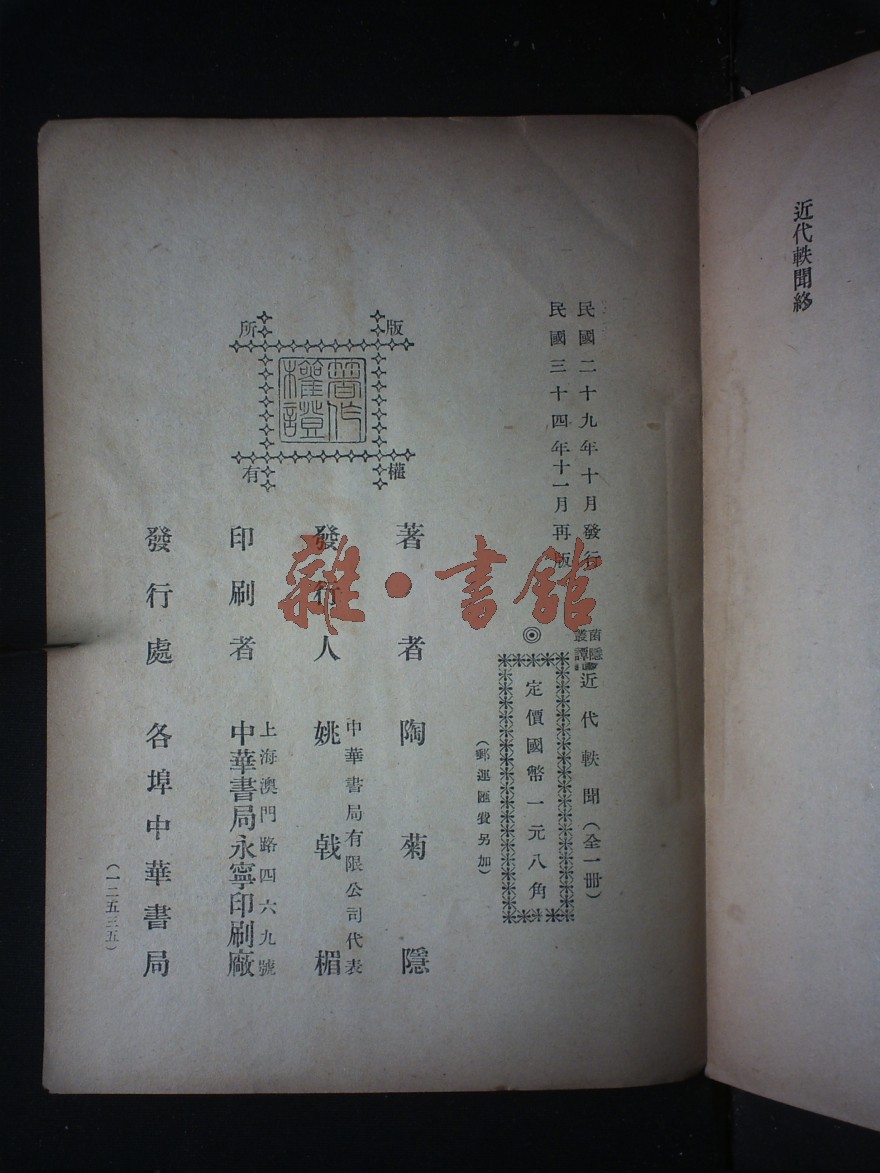 近代軼聞終
民國二十九年十月發行
民國三十四年十一月再版
菊隱叢譚
近代軼聞(全一冊)
◎定價國幣一元八角
(郵運匯費另加)
版權所有
著作權證
著者 陶菊隱
發行人 姚戟楣
中華書局有限公司代表
印刷者 中華書局永寧印刷廠
上海澳門路四六九號
發行處 各埠中華書局
(一二五三五)
雜·書館